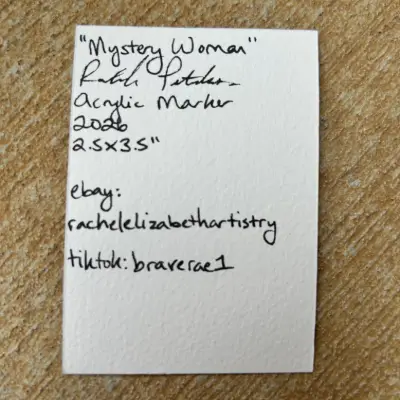 "Mystery Woman"
Acrylic Marker
2026
2.5x3.5"
ebay:
rachelelizabethartistry
tiktok: braverae1